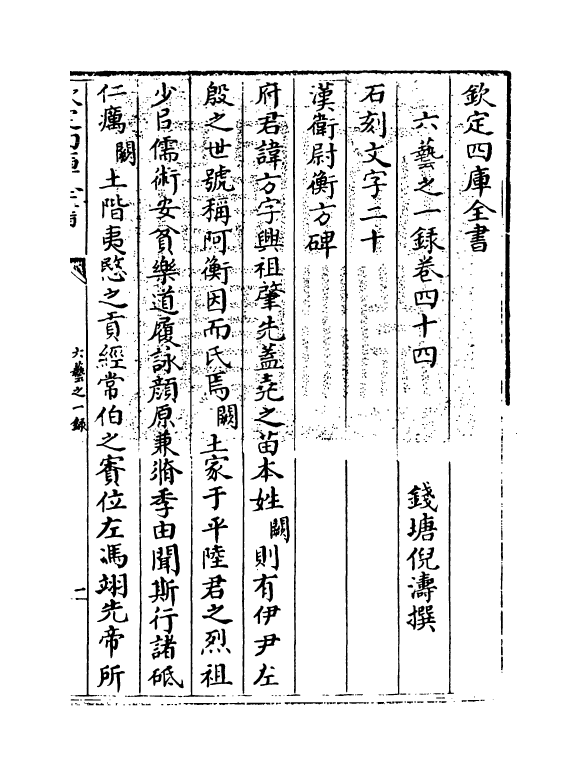 欽定四庫全書
六藝之一録卷四十四
錢塘倪濤撰
石刻文字二十
漢衛尉衡方碑
府君諱方字興祖肇先蓋堯之苗本姓闕則有伊尹左
殷之世號稱阿衡因而氏焉闕土家于平陸君之烈祖
少㠯儒術安貧樂道履詠顔原兼脩季由聞斯行諸砥
仁癘闕土階夷愍之貢經常伯之賽位左馮翊先帝所
六藝之一録